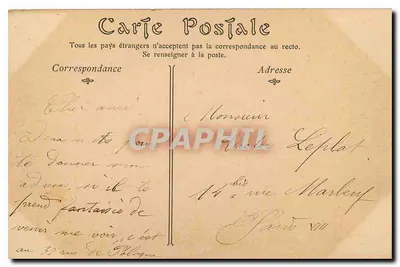 Carte Postale
Tous les pays étrangers n'acceptent pas la correspondance au recto.
Se renseigner à la poste.
Correspondance
Adresse
Cher ami
deux mots pour
te donner mon
adresse si il te
prend fantaisie de
venir me voir, c'est
au 32 rue de
Monsieur
Leplat
14 bis rue Marbeuf
Paris
CPAPHIL